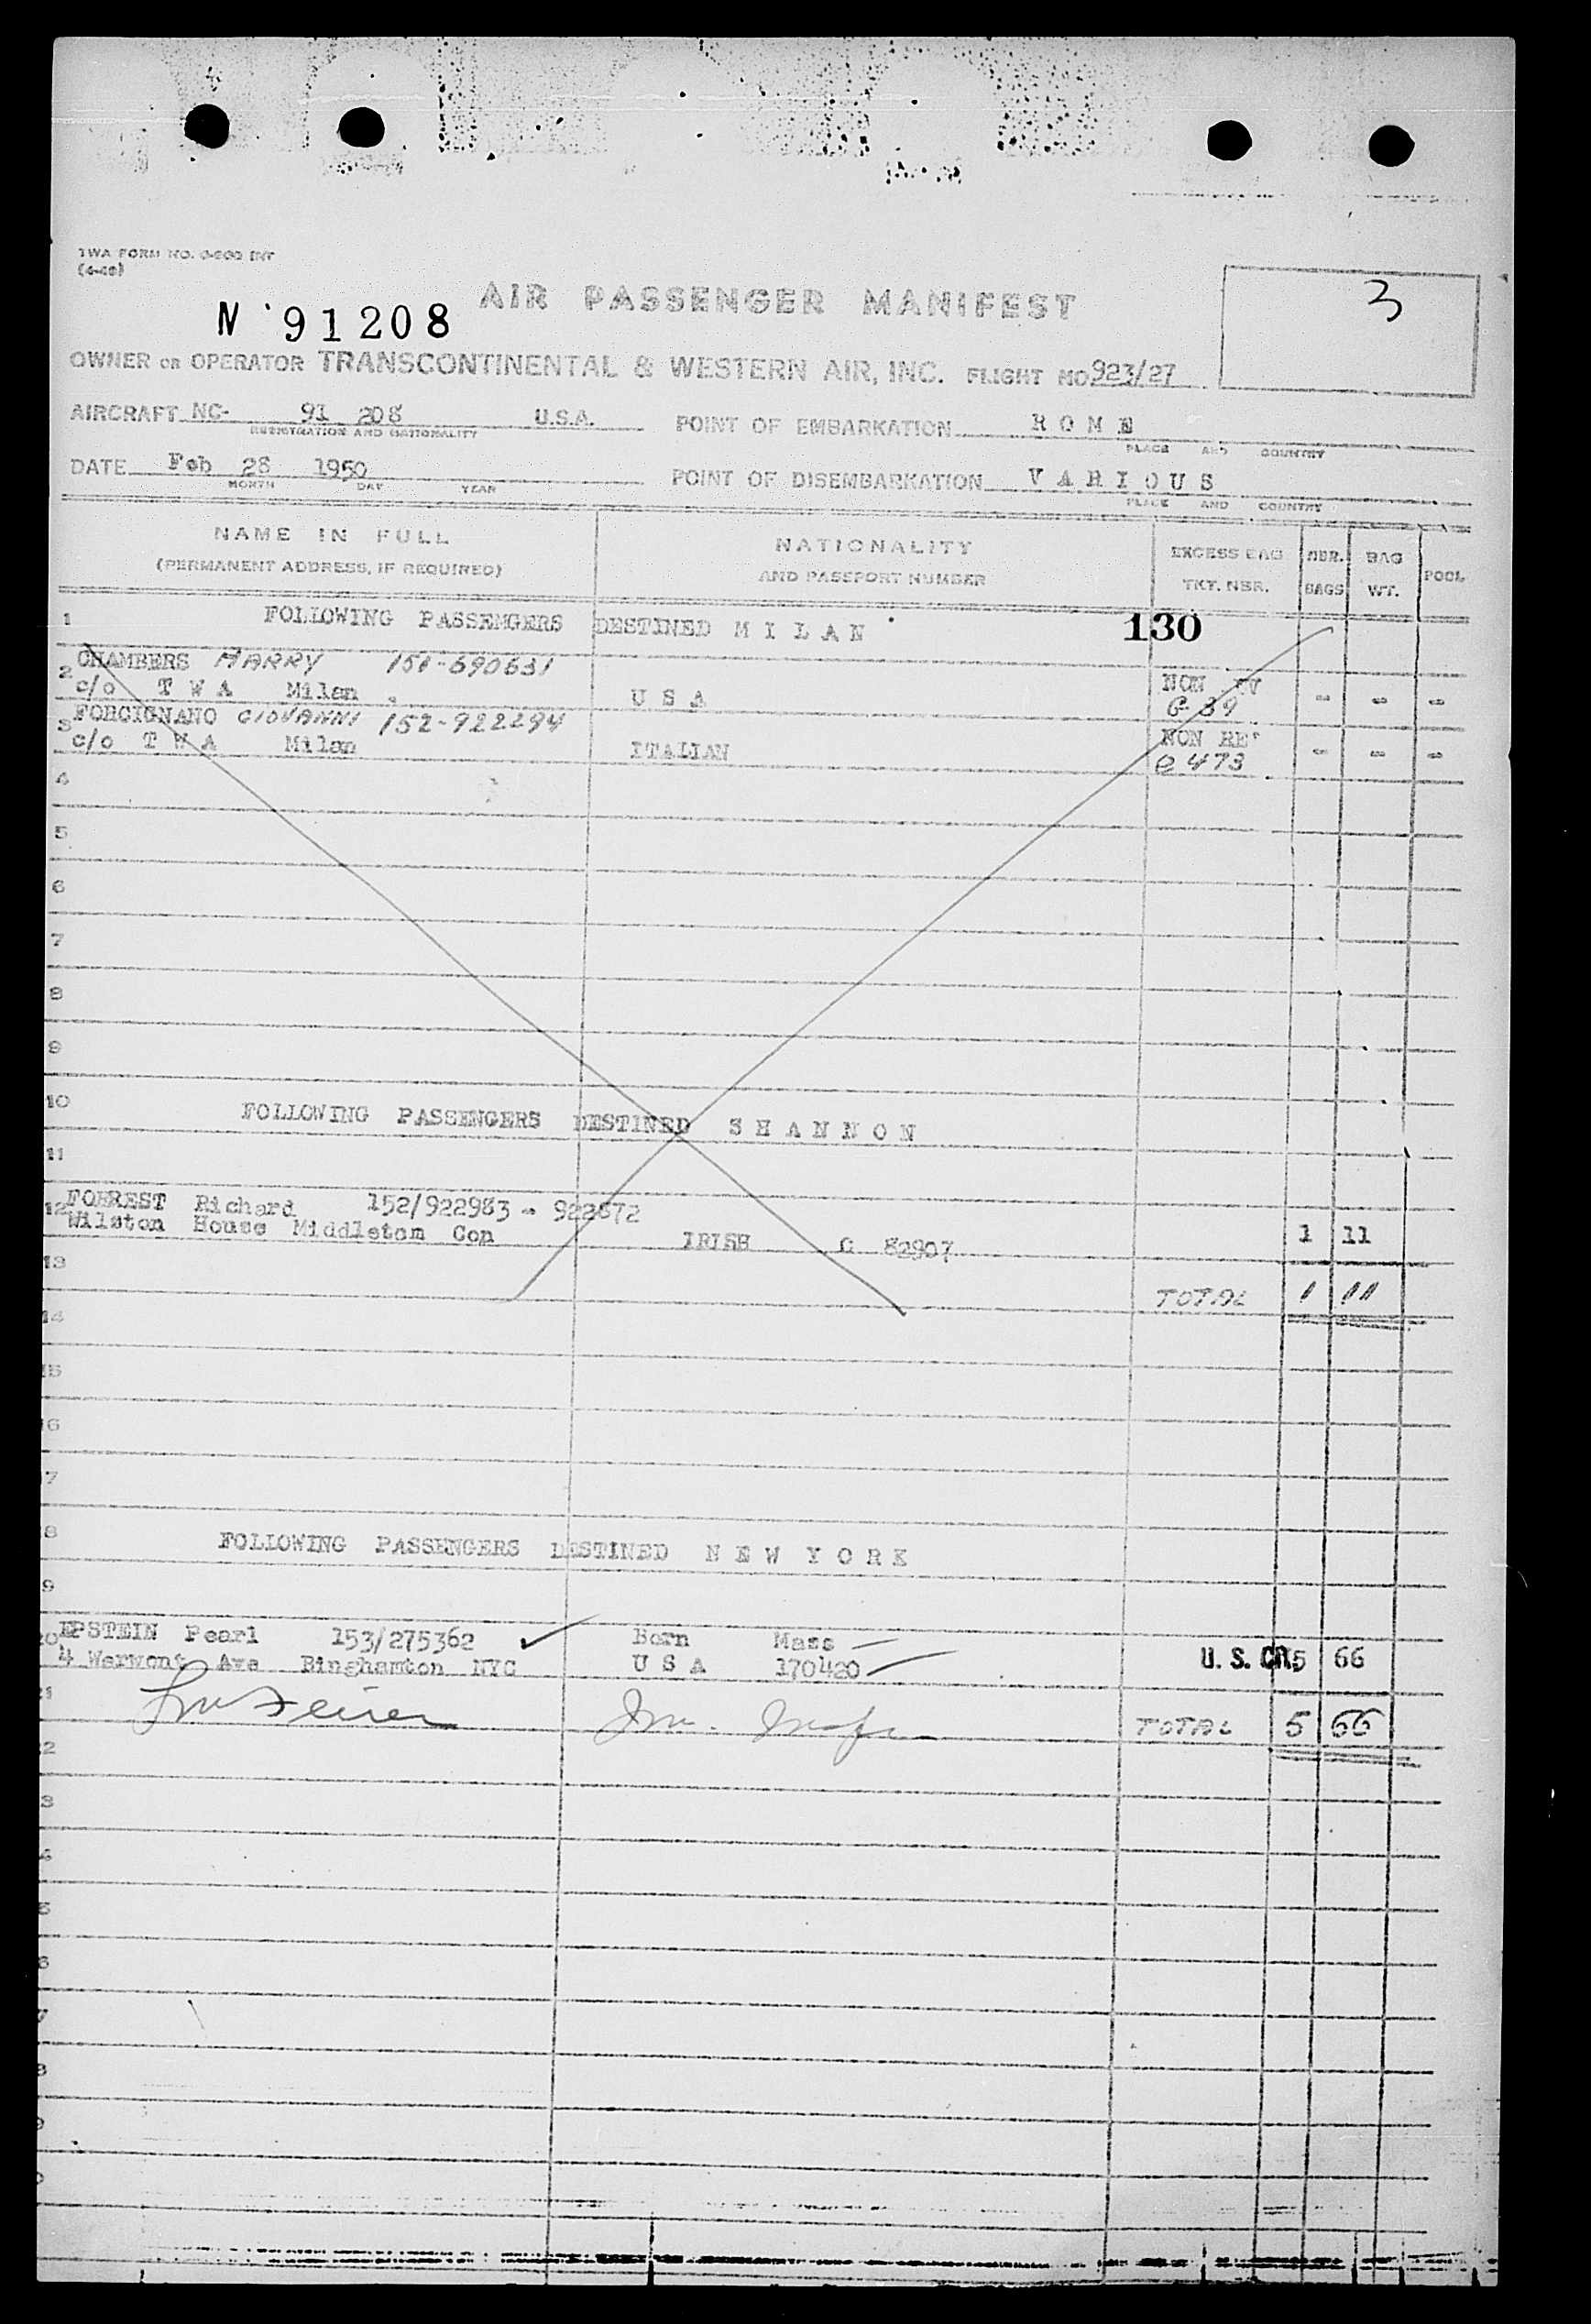 TWA FORM NO. 0-200 INT
(4-48)
N 91208
AIR PASSENGER MANIFEST
3
OWNER OR OPERATOR TRANSCONTINENTAL & WESTERN AIR, INC. FLIGHT NO 923/27
AIRCRAFT NC- 91 208 U.S.A. POINT OF EMBARKATION R O M E
REGISTRATION AND NATIONALITY PLACE AND COUNTRY
DATE Feb 28 1950 POINT OF DISEMBARKATION V A R I O U S
MONTH DAY YEAR PLACE AND COUNTRY
NAME IN FULL NATIONALITY EXCESS BAG NBR. BAG POOL
(PERMANENT ADDRESS, IF REQUIRED) AND PASSPORT NUMBER TKT. NBR. BAGS WT.
1 FOLLOWING PASSENGERS DESTINED M I L A N 130
2 CHAMBERS HARRY 151-690631 NON
c/o T W A Milan U S A 39 - - -
3 FORCIGNANO GIOVANNI 152-922294 NON RE
c/o T W A Milan ITALIAN 473 - - -
4
5
6
7
8
9
10 FOLLOWING PASSENGERS DESTINED S H A N N O N
11
12 FORREST Richard 152/922983 - 922872
Wilston House Middletom Con IRISH C 82907 1 11
13 TOTAL 1 11
14
15
16
7
8 FOLLOWING PASSENGERS DESTINED N E W Y O R K
9
20 EPSTEIN Pearl 153/275362 Born Mass
4 Warmont Ave Binghamton NYC U S A 170420 U. S. CIT. 5 66
1 TOTAL 5 66
2
3
4
5
6
7
8
9